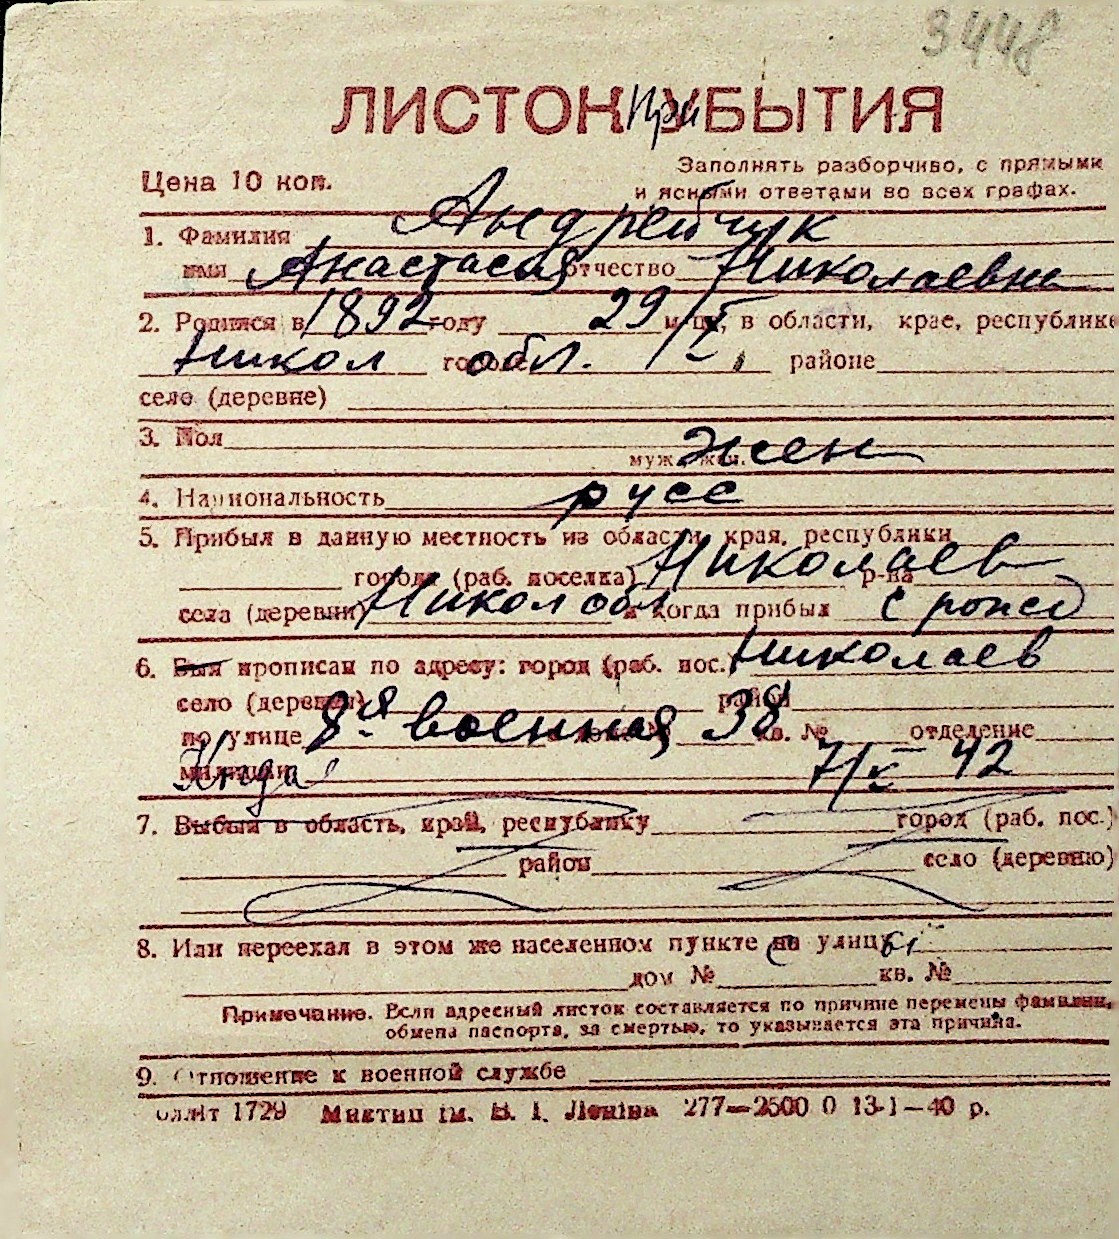 3448
ЛИСТОК При УБЫТИЯ
Цена 10 коп.
Заполнять разборчиво, с прямыми
и ясными ответами во всех графах.
1. Фамилия Андрейчук
имя Анастасия отчество Николаевна
2. Родился в 1892 году 29/X м-ца, в области, крае, республике
Никол городе обл. районе
село (деревне)
3. Пол жен
муж., жен.
4. Национальность русс
5. Прибыл в данную местность из области, края, республики
города (раб. поселка) Николаев р-на
села (деревни) Никол обл и когда прибыл с рожд
6. Был прописан по адресу: город (раб. пос.) Николаев
село (деревня) район
по улице 8я военная 38 кв. № отделение
милиции 7/X 42
7. Выбыл в область, край, республику город (раб. пос.)
район село (деревню)
8. Или переехал в этом же населенном пункте с на улицы
дом № кв. №
Примечание. Если адресный листок составляется по причине перемены фамилии,
обмена паспорта, за смертью, то указывается эта причина.
9. Отношение к военной службе
Оллит 1729 Миктип ім. В. І. Леніна 277—2500 0 13-1—40 р.